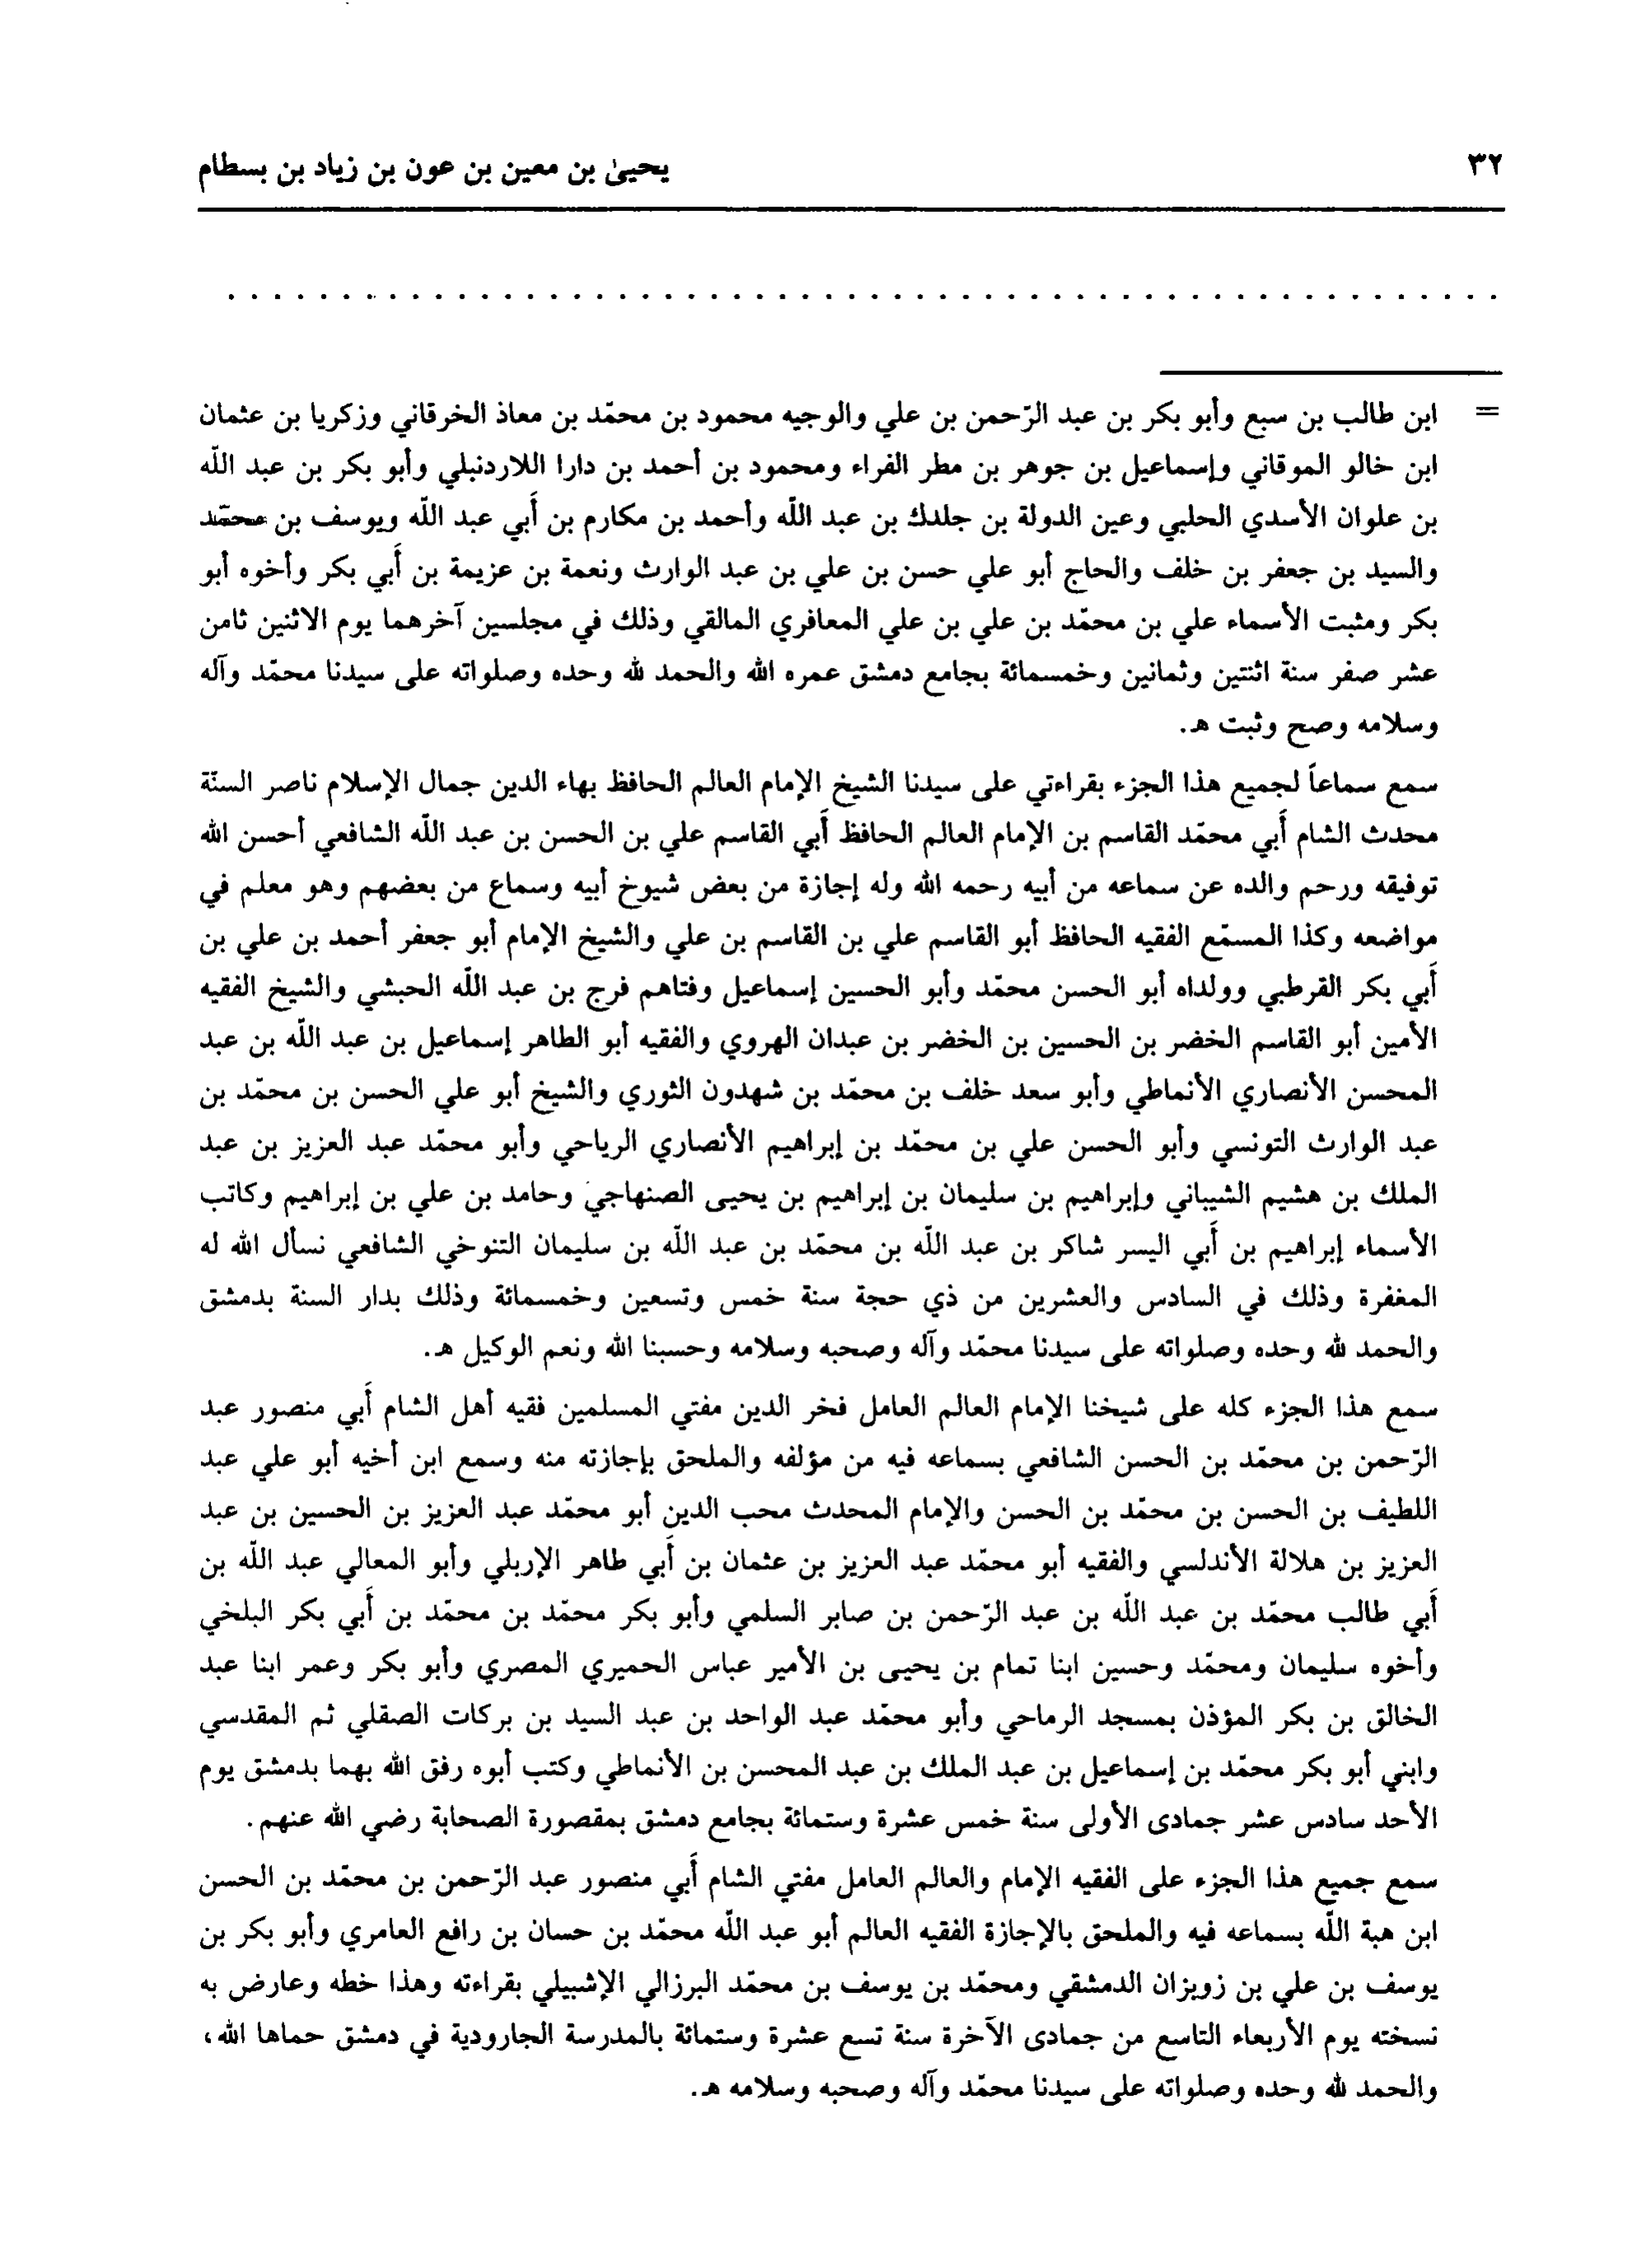 ٣٢
يحيىٰ بن معين بن عون بن زياد بن بسطام
. . . . . . . . . . . . . . . . . . . . . . . . . . . . . . . . . . . . . . . . . . . . . . . . . . . . . . . .
= ابن طالب بن سبع وأبو بكر بن عبد الرّحمن بن علي والوجيه محمود بن محمّد بن معاذ الخرقاني وزكريا بن عثمان
ابن خالو الموقاني وإسماعيل بن جوهر بن مطر الفراء ومحمود بن أحمد بن دارا اللاردنبلي وأبو بكر بن عبد اللّه
بن علوان الأسدي الحلبي وعين الدولة بن جلدك بن عبد اللّه وأحمد بن مكارم بن أَبي عبد اللّه ويوسف بن محمّد
والسيد بن جعفر بن خلف والحاج أبو علي حسن بن علي بن عبد الوارث ونعمة بن عزيمة بن أَبي بكر وأخوه أبو
بكر ومثبت الأسماء علي بن محمّد بن علي بن علي المعافري المالقي وذلك في مجلسين آخرهما يوم الاثنين ثامن
عشر صفر سنة اثنتين وثمانين وخمسمائة بجامع دمشق عمره الله والحمد لله وحده وصلواته على سيدنا محمّد وآله
وسلامه وصح وثبت هـ.
سمع سماعاً لجميع هذا الجزء بقراءتي على سيدنا الشيخ الإمام العالم الحافظ بهاء الدين جمال الإسلام ناصر السنّة
محدث الشام أَبي محمّد القاسم بن الإمام العالم الحافظ أَبي القاسم علي بن الحسن بن عبد اللّه الشافعي أحسن الله
توفيقه ورحم والده عن سماعه من أبيه رحمه الله وله إجازة من بعض شيوخ أبيه وسماع من بعضهم وهو معلم في
مواضعه وكذا المسمّع الفقيه الحافظ أبو القاسم علي بن القاسم بن علي والشيخ الإمام أبو جعفر أحمد بن علي بن
أَبي بكر القرطبي وولداه أبو الحسن محمّد وأبو الحسين إسماعيل وفتاهم فرج بن عبد اللّه الحبشي والشيخ الفقيه
الأمين أبو القاسم الخضر بن الحسين بن الخضر بن عبدان الهروي والفقيه أبو الطاهر إسماعيل بن عبد اللّه بن عبد
المحسن الأنصاري الأنماطي وأبو سعد خلف بن محمّد بن شهدون الثوري والشيخ أبو علي الحسن بن محمّد بن
عبد الوارث التونسي وأبو الحسن علي بن محمّد بن إبراهيم الأنصاري الرياحي وأبو محمّد عبد العزيز بن عبد
الملك بن هشيم الشيباني وإبراهيم بن سليمان بن إبراهيم بن يحيى الصنهاجي وحامد بن علي بن إبراهيم وكاتب
الأسماء إبراهيم بن أَبي اليسر شاكر بن عبد اللّه بن محمّد بن عبد اللّه بن سليمان التنوخي الشافعي نسأل الله له
المغفرة وذلك في السادس والعشرين من ذي حجة سنة خمس وتسعين وخمسمائة وذلك بدار السنة بدمشق
والحمد لله وحده وصلواته على سيدنا محمّد وآله وصحبه وسلامه وحسبنا الله ونعم الوكيل هـ.
سمع هذا الجزء كله على شيخنا الإمام العالم العامل فخر الدين مفتي المسلمين فقيه أهل الشام أَبي منصور عبد
الرّحمن بن محمّد بن الحسن الشافعي بسماعه فيه من مؤلفه والملحق بإجازته منه وسمع ابن أخيه أبو علي عبد
اللطيف بن الحسن بن محمّد بن الحسن والإمام المحدث محب الدين أبو محمّد عبد العزيز بن الحسين بن عبد
العزيز بن هلالة الأندلسي والفقيه أبو محمّد عبد العزيز بن عثمان بن أَبي طاهر الإربلي وأبو المعالي عبد اللّه بن
أَبي طالب محمّد بن عبد اللّه بن عبد الرّحمن بن صابر السلمي وأبو بكر محمّد بن محمّد بن أَبي بكر البلخي
وأخوه سليمان ومحمّد وحسين ابنا تمام بن يحيى بن الأمير عباس الحميري المصري وأبو بكر وعمر ابنا عبد
الخالق بن بكر المؤذن بمسجد الرماحي وأبو محمّد عبد الواحد بن عبد السيد بن بركات الصقلي ثم المقدسي
وابني أبو بكر محمّد بن إسماعيل بن عبد الملك بن عبد المحسن بن الأنماطي وكتب أبوه رفق الله بهما بدمشق يوم
الأحد سادس عشر جمادى الأولى سنة خمس عشرة وستمائة بجامع دمشق بمقصورة الصحابة رضي الله عنهم.
سمع جميع هذا الجزء على الفقيه الإمام والعالم العامل مفتي الشام أَبي منصور عبد الرّحمن بن محمّد بن الحسن
ابن هبة اللّه بسماعه فيه والملحق بالإجازة الفقيه العالم أبو عبد اللّه محمّد بن حسان بن رافع العامري وأبو بكر بن
يوسف بن علي بن زويزان الدمشقي ومحمّد بن يوسف بن محمّد البرزالي الإشبيلي بقراءته وهذا خطه وعارض به
نسخته يوم الأربعاء التاسع من جمادى الآخرة سنة تسع عشرة وستمائة بالمدرسة الجارودية في دمشق حماها الله،
والحمد لله وحده وصلواته على سيدنا محمّد وآله وصحبه وسلامه هـ.